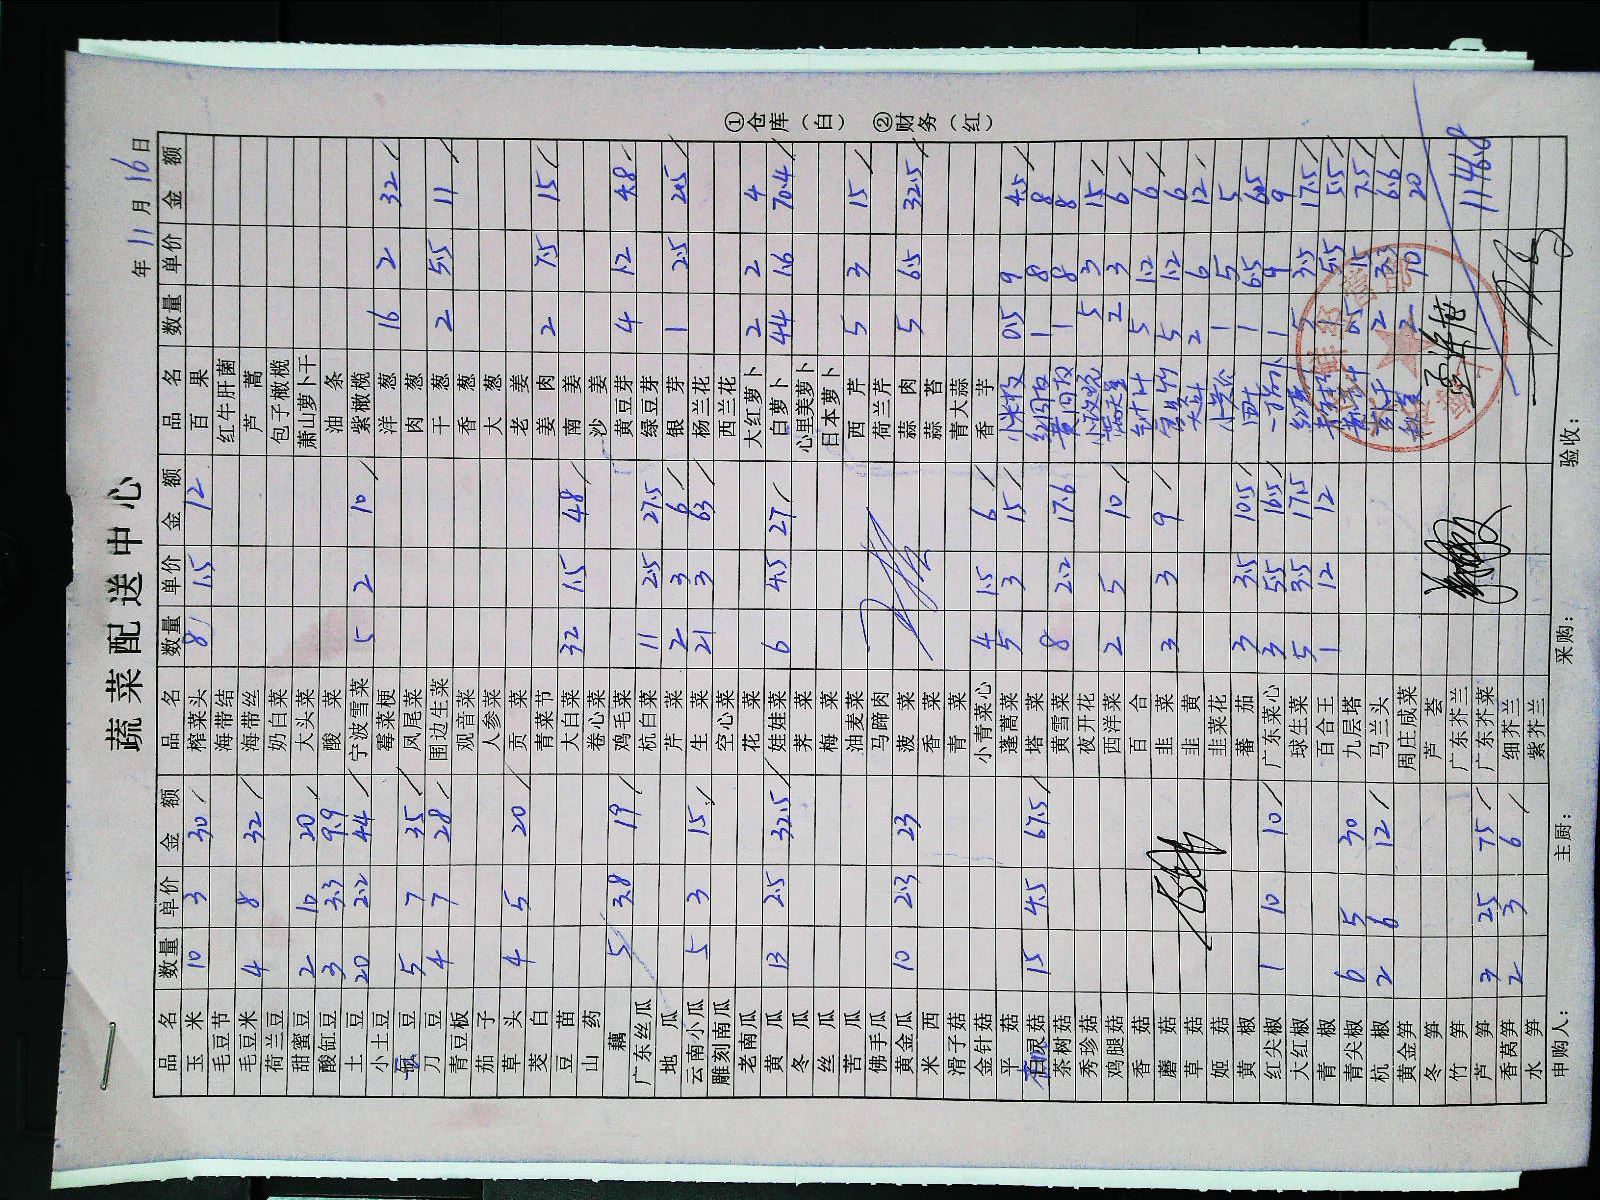 蔬菜配送中心
年 11 月 16 日
品名 数量 单价 金额 品名 数量 单价 金额 品名 数量 单价 金额
玉米 10 3 30 榨菜头 8 1.5 12 百果
毛豆节 海带结 红牛肝菌
毛豆米 4 8 32 海带丝 芦蒿
荷兰豆 奶白菜 包子橄榄
甜蜜豆 2 10 20 大头菜 萧山萝卜干
酸缸豆 3 3.3 9.9 酸菜 油条
土豆 20 2.2 44 宁波雪菜 5 2 10 紫橄榄
小土豆 霉菜梗 洋葱 16 2 32
豆 5 7 35 凤尾菜 肉葱
刀豆 4 7 28 围边生菜 干葱 2 5.5 11
青豆板 观音菜 香葱
茄子 人参菜 大葱
草头 4 5 20 贡菜 老姜
茭白 青菜节 姜肉 2 7.5 15
豆苗 大白菜 32 1.5 48 南姜
山药 卷心菜 沙姜
藕 5 3.8 19 鸡毛菜 黄豆芽 4 1.2 4.8
广东丝瓜 杭白菜 11 2.5 27.5 绿豆芽
地瓜 芹菜 2 3 6 银芽 1 2.5 2.5
云南小瓜 5 3 15 生菜 21 3 63 杨兰花
雕刻南瓜 空心菜 西兰花
老南瓜 花菜 大红萝卜 2 2 4
黄瓜 13 2.5 32.5 娃娃菜 6 4.5 27 白萝卜 44 1.6 70.4
冬瓜 荠菜 心里美萝卜
丝瓜 梅菜 日本萝卜
苦瓜 油麦菜 西芹 5 3 15
佛手瓜 马蹄肉 荷兰芹
黄金瓜 10 2.3 23 菠菜 蒜肉 5 6.5 32.5
米西 香菜 蒜苔
滑子菇 青菜 青大蒜
金针菇 小青菜心 4 1.5 6 香芋
平菇 蓬蒿菜 5 3 15 小米椒 0.5 9 4.5
白灵菇 15 4.5 67.5 塔菜 红圆椒 1 8 8
茶树菇 黄雪菜 8 2.2 17.6 黄圆椒 1 8 8
秀珍菇 夜开花 5 3 15
鸡腿菇 西洋菜 2 5 10 2 3 6
香菇 百合 5 1.2 6
蘑菇 韭菜 3 3 9 5 1.2 6
草菇 韭黄 2 6 12
姬菇 韭菜花 1 5 5
黄椒 蕃茄 3 3.5 10.5 1 6.5 6.5
红尖椒 1 10 10 广东菜心 3 5.5 16.5 1 9 9
大红椒 球生菜 5 3.5 17.5 5 3.5 17.5
青椒 百合王 1 12 12 5.5 5.5
青尖椒 6 5 30 九层塔 0.5 15 7.5
杭椒 2 6 12 马兰头 2 3.3 6.6
黄金笋 周庄咸菜 2 10 20
冬笋 芦荟
竹笋 广东芥兰 1146.8
芦笋 3 25 75 广东芥菜
香莴笋 2 3 6 细芥兰
水笋 紫芥兰
申购人： 主厨： 采购： 验收：
①仓库（白） ②财务（红）